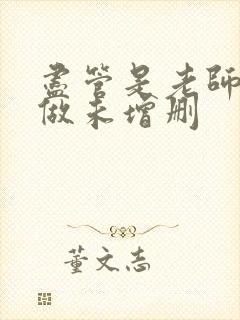 盡管是老師
做未增删
董文志